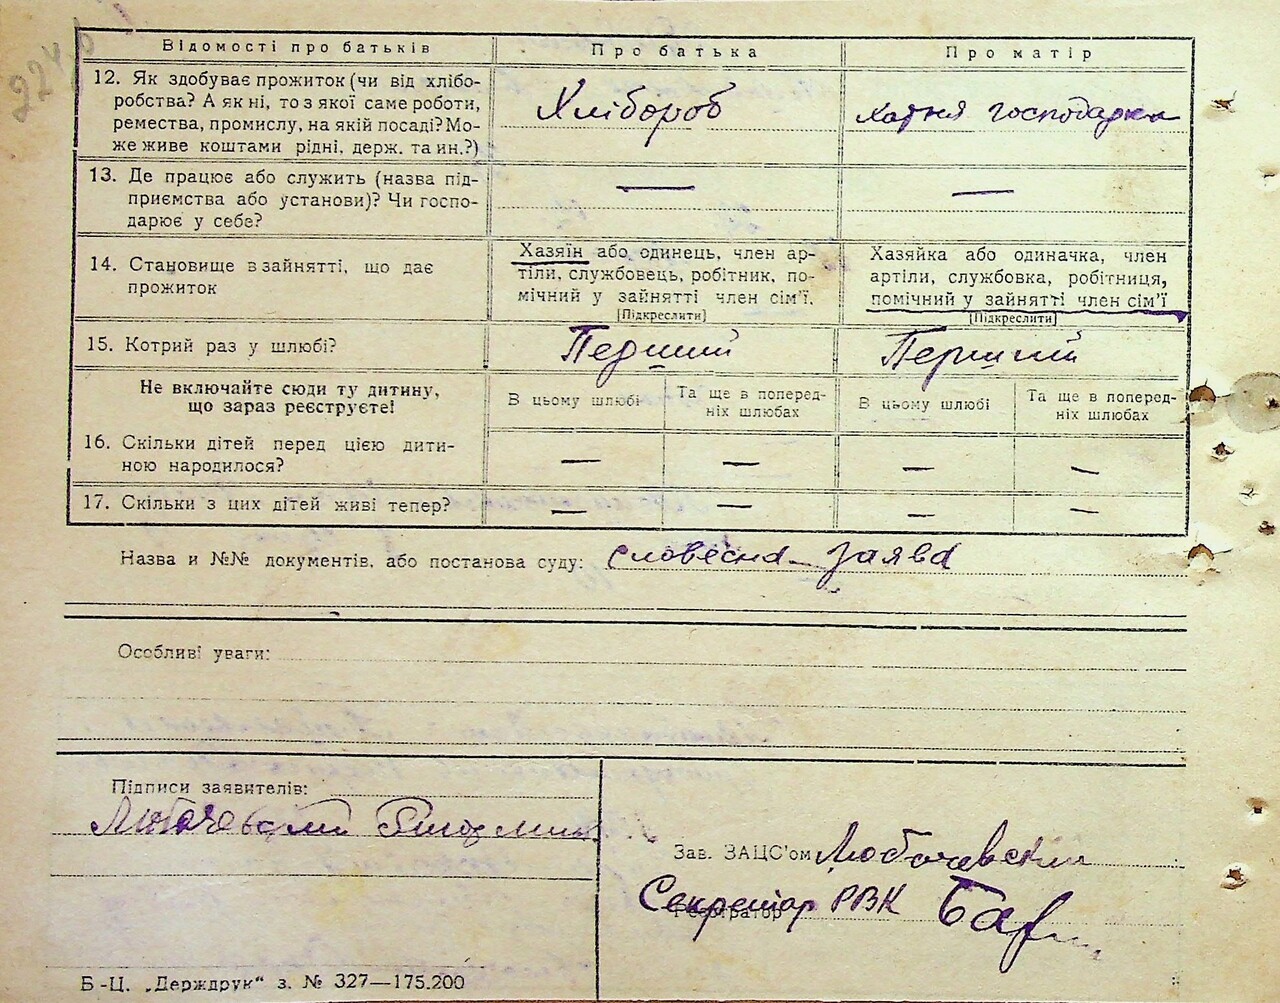 224б
Відомості про батьків Про батька Про матір
12. Як здобуває прожиток (чи від хлібо-
робства? А як ні, то з якої саме роботи,
ремества, промислу, на якій посаді? Мо-
же живе коштами рідні, держ. та ин.?)
Хлібороб
хатня господарка
13. Де працює або служить (назва під-
приємства або установи)? Чи госпо-
дарює у себе?
—
—
14. Становище в зайнятті, що дає
прожиток
Хазяїн або одинець, член ар-
тіли, службовець, робітник, по-
мічний у зайнятті член сім'ї.
[Підкреслити]
Хазяйка або одиначка, член
артіли, службовка, робітниця,
помічний у зайнятті член сім'ї
[Підкреслити]
15. Котрий раз у шлюбі? Перший Перший
Не включайте сюди ту дитину,
що зараз реєструєте!
В цьому шлюбі
Та ще в поперед-
ніх шлюбах
В цьому шлюбі
Та ще в поперед-
ніх шлюбах
16. Скільки дітей перед цією дити-
ною народилося?
— — — —
17. Скільки з цих дітей живі тепер? — — — —
Назва и №№ документів, або постанова суду: словесна заява
Особливі уваги:
Підписи заявителів:
Любачевский
Зав. ЗАЦС'ом Любачевский
Реєстратор
Секретар РВК
Б-Ц. „Держдрук" з. № 327—175.200